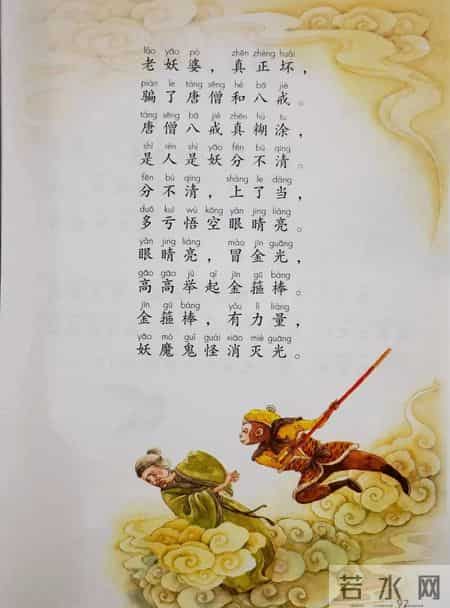 lǎo yāo pó zhēn zhèng huài
老妖婆，真正坏，
piàn le táng sēng hé bā jiè
骗了唐僧和八戒。
táng sēng bā jiè zhēn hú tu
唐僧八戒真糊涂，
shì rén shì yāo fēn bù qīng
是人是妖分不清。
fēn bù qīng shàng le dàng
分不清，上了当，
duō kuī wù kōng yǎn jing liàng
多亏悟空眼睛亮。
yǎn jing liàng mào jīn guāng
眼睛亮，冒金光，
gāo gāo jǔ qǐ jīn gū bàng
高高举起金箍棒。
jīn gū bàng yǒu lì liàng
金箍棒，有力量，
yāo mó guǐ guài xiāo miè guāng
妖魔鬼怪消灭光。
若水网
97